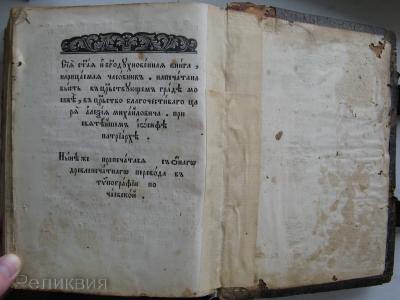 Сїѧ ст҃аѧ и҆ бг҃одꙋхновеннаѧ книга,
нарицаемаѧ часовникъ. напечатана
бысть въ црⷭ҇твꙋющемъ градѣ мо
сквѣ, въ црⷭ҇тво благочестиваго ца
рѧ а҆леѯїѧ михайловича. при
свѧтѣйшемъ і҆ѡсифѣ
патрїархѣ.
Нынѣ же препечатасѧ съ ѻ҆наго
древлепечатнаго перевода въ
тѷпографїи по
чаевской.
Реликвия